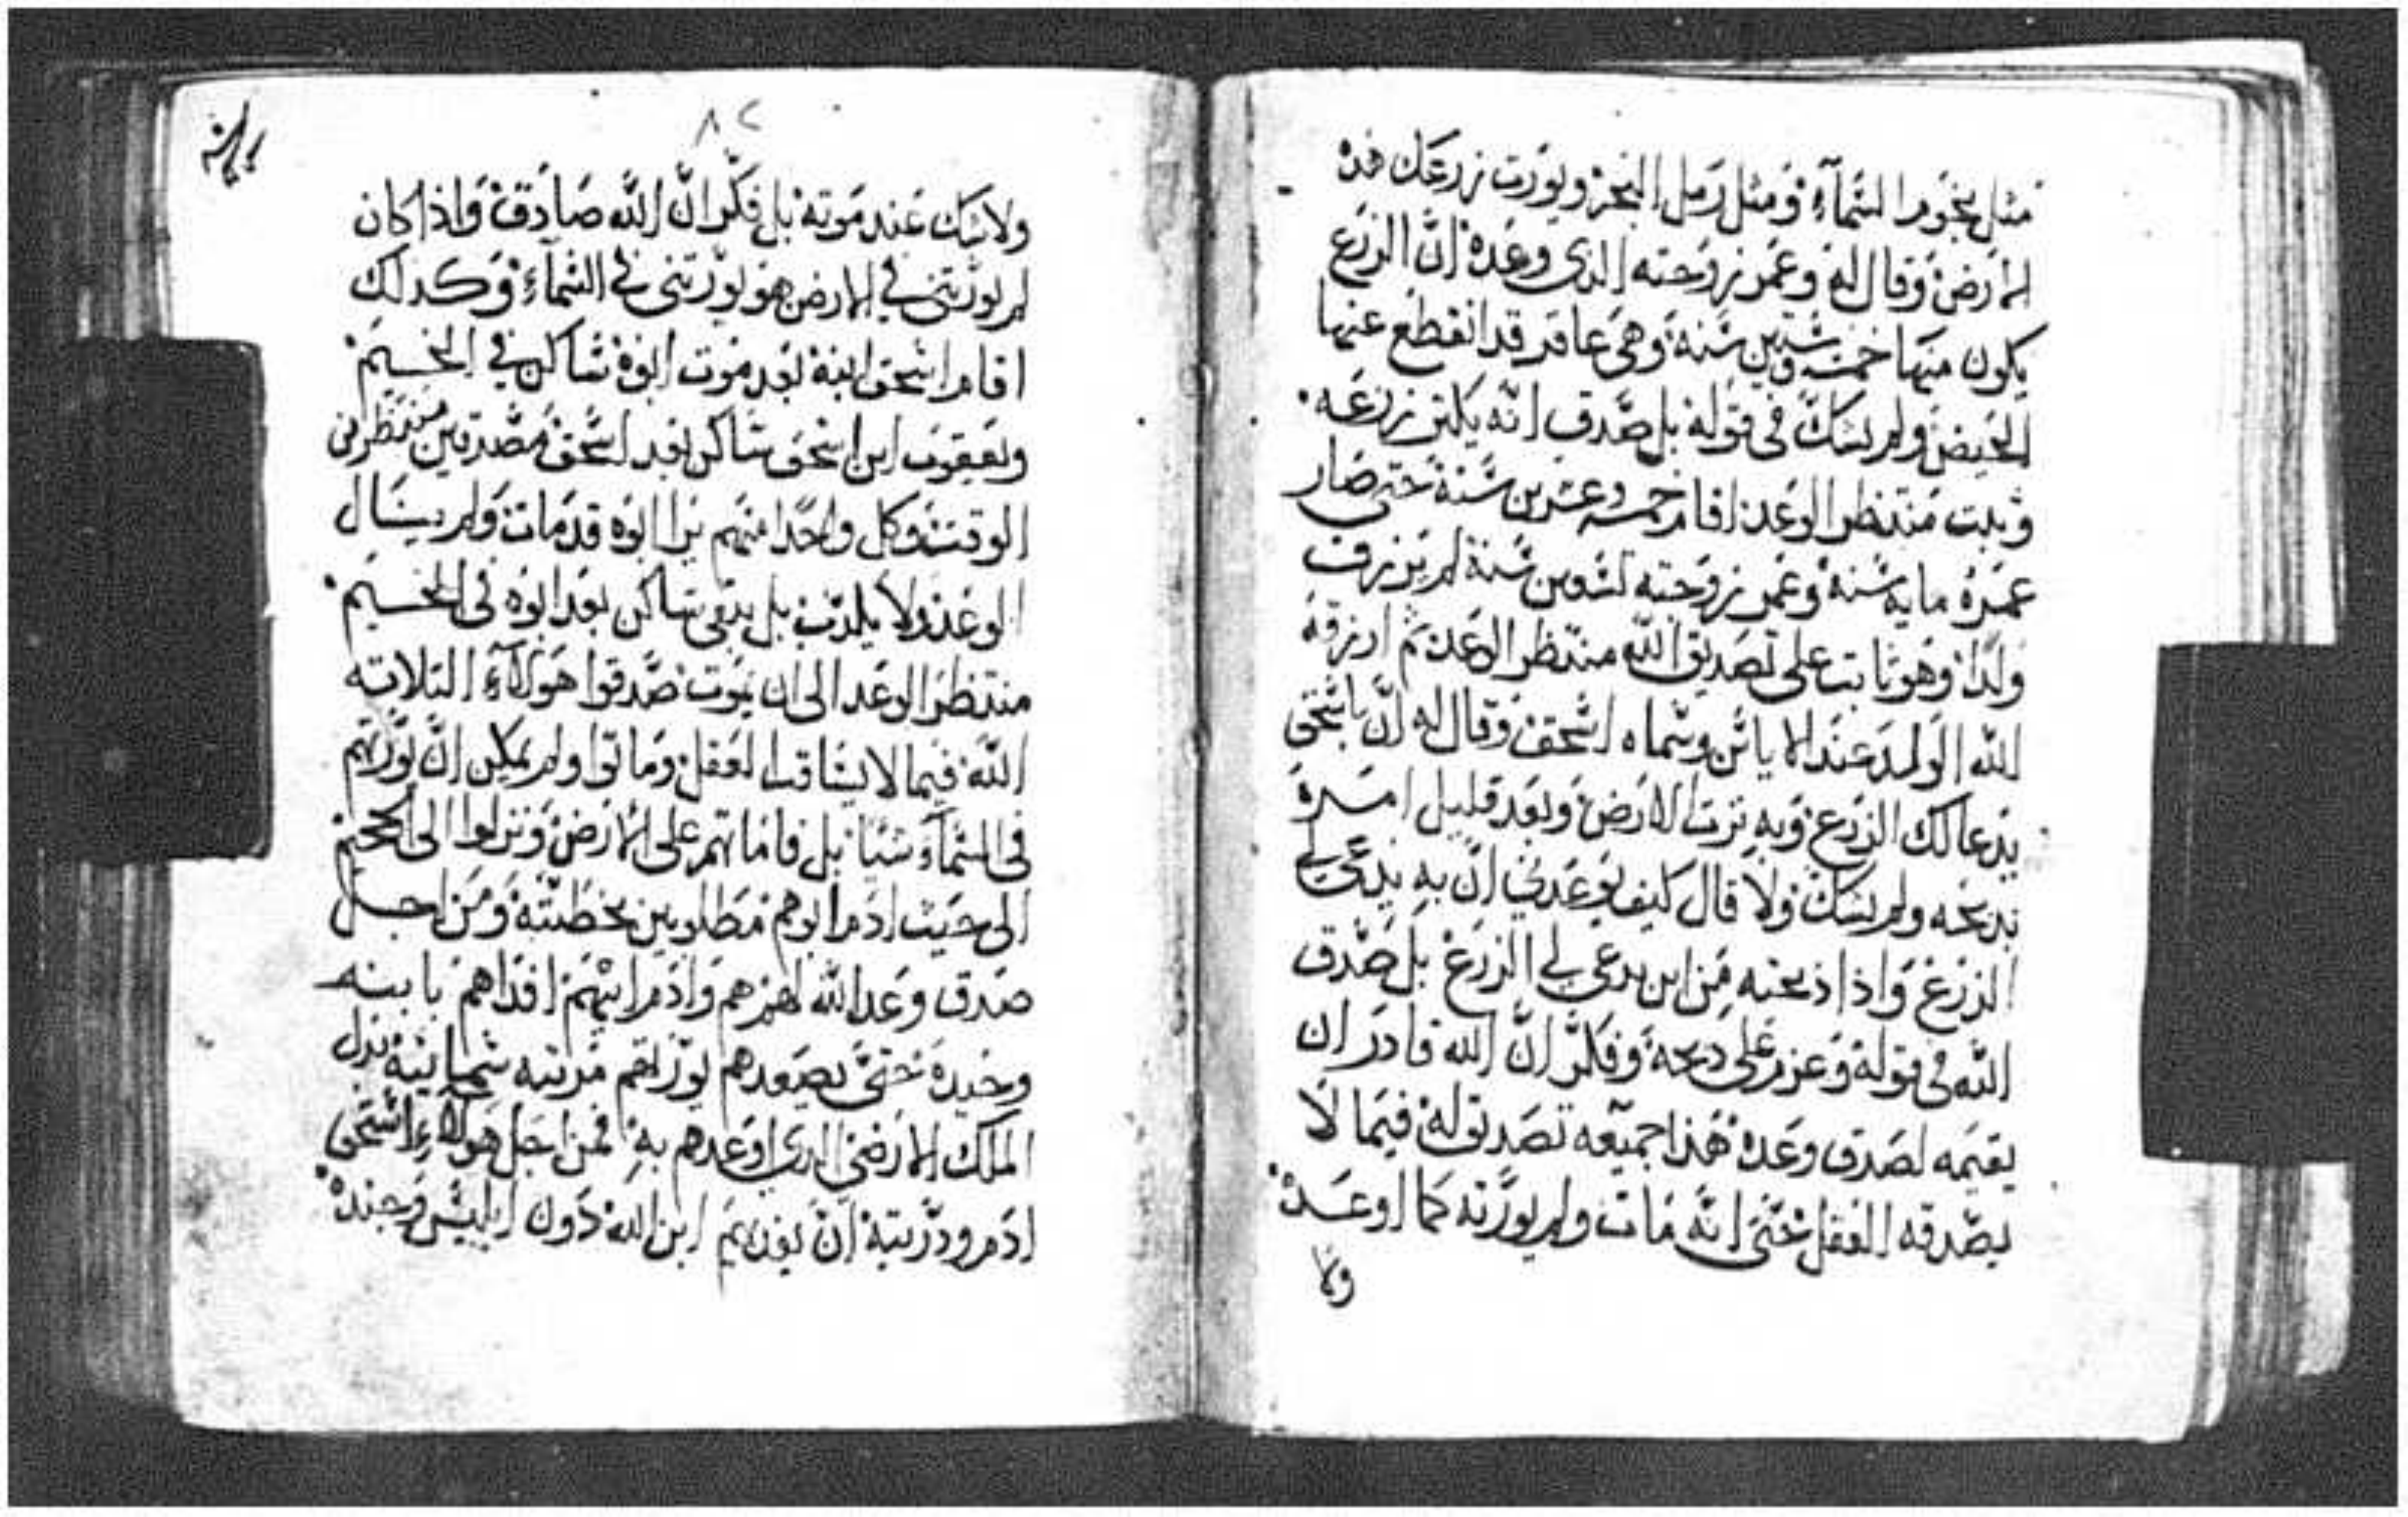 مثل نجوم السمآء ومثل رمل البحر ويورت زرعك هذه
الارض وقال له وعمر زوجته الدى وعده ان الزرع
يكون منها خمسة وستين سنة وهى عاقر قد انقطع عنها
الحيض ولم يشك فى قوله بل صدق انه يكتر زرعه
وثبت منتظر الوعد اقام خمسه وعشرين سنة حتى صار
عمره مايه سنة وعمر زوجته تسعين سنة لم يرزق
ولدا وهو ثابت على تصديق الله منتظر الوعد ثم ارزقه
الله الولد عند الاياس وسماه اسحق وقال له ان باسحق
يدعا لك الزرع وبه ترت الارض وبعد قليل امره
بدبحه ولم يشك ولا قال كيف يوعدني ان به يدعى لي
الزرع واذا ذبحته من اين يدعى لي الزرع بل صدق
الله فى قوله وعزم على دبحه وفكر ان الله قادر ان
يقيمه لصدق وعده هذا جميعه تصديق له فيما لا
يصدقه العقل حتى انه مات ولم يورته كما اوعده
ولا
٨٢
ولا شك عند موته بل فكر ان الله صادق واذا كان
لم يورتنى في الارض هو يورتنى في السمآء وكدلك
اقام اسحق ابنه بعد موت ابوه ساكن في الخيم
ويعقوب ابن اسحق ساكن بعد اسحق مصدقين منتظرين
الوقت وكل واحدا منهم يرا ابوه قد مات ولم ينال
الوعد ولا يكدب بل يبقى ساكن بعد ابوه فى الخيم
منتظر الوعد الى ان يموت صدقوا هولآء التلاته
الله فيما لا يشاقه العقل وماتوا ولم يمكن ان يورتهم
فى السمآء شيا بل فاماتهم على الارض ونزلوا الى الجحيم
الى حيث ادم ابوهم مطلوبين بخطيته ومن اجل
صدق وعد الله لهم هم وادم ابيهم افداهم بابنه
وحيده حتى يصعدهم يورتهم مرتبه سمايية بدل
الملك الارضى الدى اوعدهم به فمن اجل هولآء استحق
ادم ودريته ان يفديهم ابن الله دون ابليس وجنده